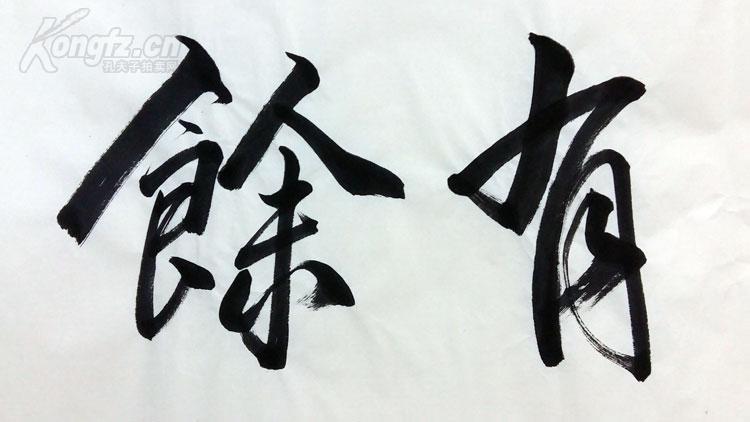 Kongfz.cn
孔夫子拍卖网
有餘